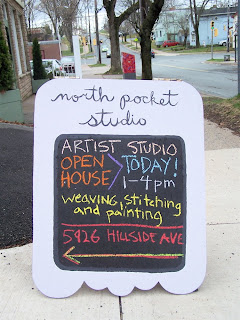 north pocket
studio
ARTIST STUDIO
OPEN HOUSE > TODAY!
1-4pm
weaving, stitching
and painting
5426 HILLSIDE AVE